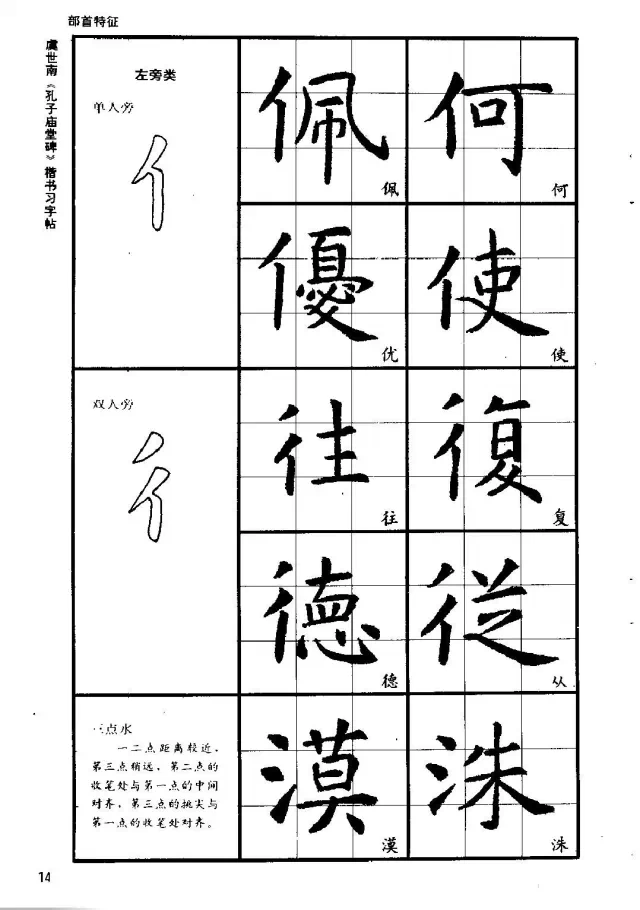 部首特征
虞世南《孔子庙堂碑》楷书习字帖
左旁类
单人旁
亻
佩 何
佩 何
優 使
优 使
双人旁
彳
往 復
往 复
德 従
德 从
三点水
一二点距离较近，
第三点稍远，第二点的
收笔处与第一点的中间
对齐，第三点的挑尖与
第一点的收笔处对齐。
漠 洙
漠 洙
14